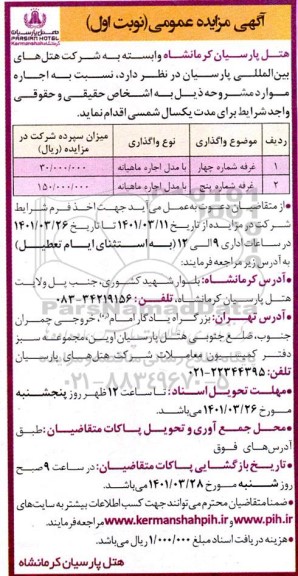 آگهی مزایده عمومی (نوبت اول)
هتل پارسیان
PARSIAN HOTEL
Kermanshah کرمانشاه
هتل پارسیان کرمانشاه وابسته به شرکت هتل‌های
بین‌المللی پارسیان در نظر دارد، نسبت به اجاره
موارد مشروحه ذیل به اشخاص حقیقی و حقوقی
واجد شرایط برای مدت یکسال شمسی اقدام نماید.
ردیف موضوع واگذاری نوع واگذاری میزان سپرده شرکت در مزایده (ریال)
۱ غرفه شماره چهار با مدل اجاره ماهیانه ۳۰/۰۰۰/۰۰۰
۲ غرفه شماره پنج با مدل اجاره ماهیانه ۱۵۰/۰۰۰/۰۰۰
از متقاضیان دعوت به عمل می‌آید جهت اخذ فرم شرایط
شرکت در مزایده از تاریخ ۱۴۰۱/۰۳/۱۱ تا تاریخ ۱۴۰۱/۰۳/۲۶
در ساعات اداری ۹ الی ۱۲ (به استثنای ایام تعطیل)
به آدرس زیر مراجعه فرمایند:
آدرس کرمانشاه: بلوار شهید کشوری، جنب پل ولایت
هتل پارسیان کرمانشاه، تلفن: ۳۴۲۱۹۱۵۶-۰۸۳
آدرس تهران: بزرگراه یادگار امام(ره)، خروجی چمران
جنوب، ضلع جنوبی هتل پارسیان اوین، مجموعه سبز
دفتر کمیسیون معاملات شرکت هتل‌های پارسیان
تلفن: ۲۲۳۴۴۳۹۵-۰۲۱
۰۲۱-۸۸۳۴۹۶۷۰-۵
مهلت تحویل اسناد: تا ساعت ۱۲ ظهر روز پنجشنبه
مورخ ۱۴۰۱/۰۳/۲۶ می‌باشد.
محل جمع آوری و تحویل پاکات متقاضیان: طبق
آدرس‌های فوق
تاریخ بازگشایی پاکات متقاضیان: در ساعت ۹ صبح
روز شنبه مورخ ۱۴۰۱/۰۳/۲۸ می‌باشد.
ضمنا متقاضیان محترم می‌توانند جهت کسب اطلاعات بیشتر به سایت‌های
www.pih.ir و www.kermanshahpih.ir مراجعه فرمایند.
هزینه دریافت اسناد مبلغ ۱/۰۰۰/۰۰۰ ریال می‌باشد.
هتل پارسیان کرمانشاه